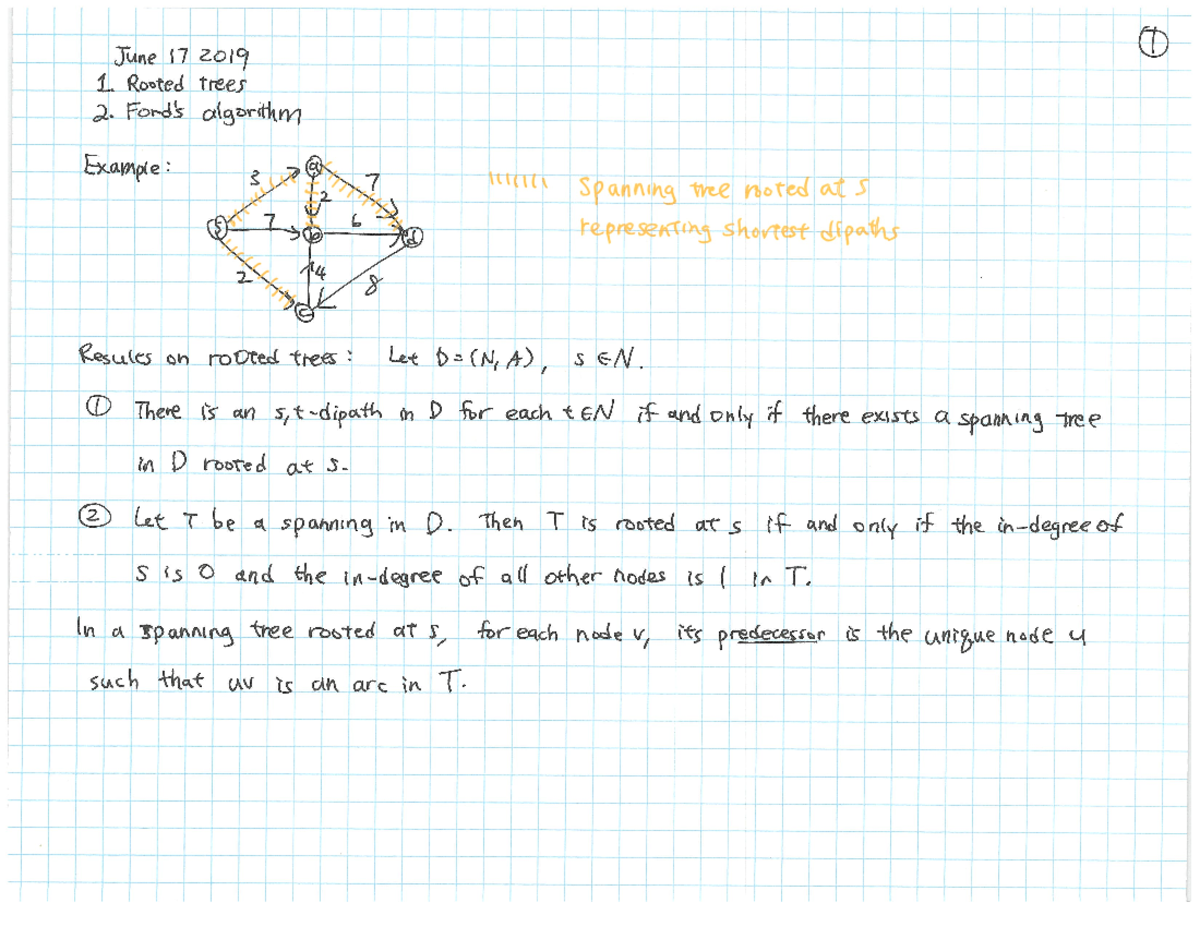 ①
June 17 2019
1. Rooted trees
2. Ford's algorithm
Example:
3
a
7
2
s
7
b
6
d
2
4
8
c
Spanning tree rooted at s
representing shortest dipaths
Resules on rooted trees: Let D=(N, A), s ∈ N.
① There is an s,t-dipath in D for each t ∈ N if and only if there exists a spanning tree
in D rooted at s.
② Let T be a spanning in D. Then T is rooted at s if and only if the in-degree of
s is 0 and the in-degree of all other nodes is 1 in T.
In a spanning tree rooted at s, for each node v, its predecessor is the unique node u
such that uv is an arc in T.